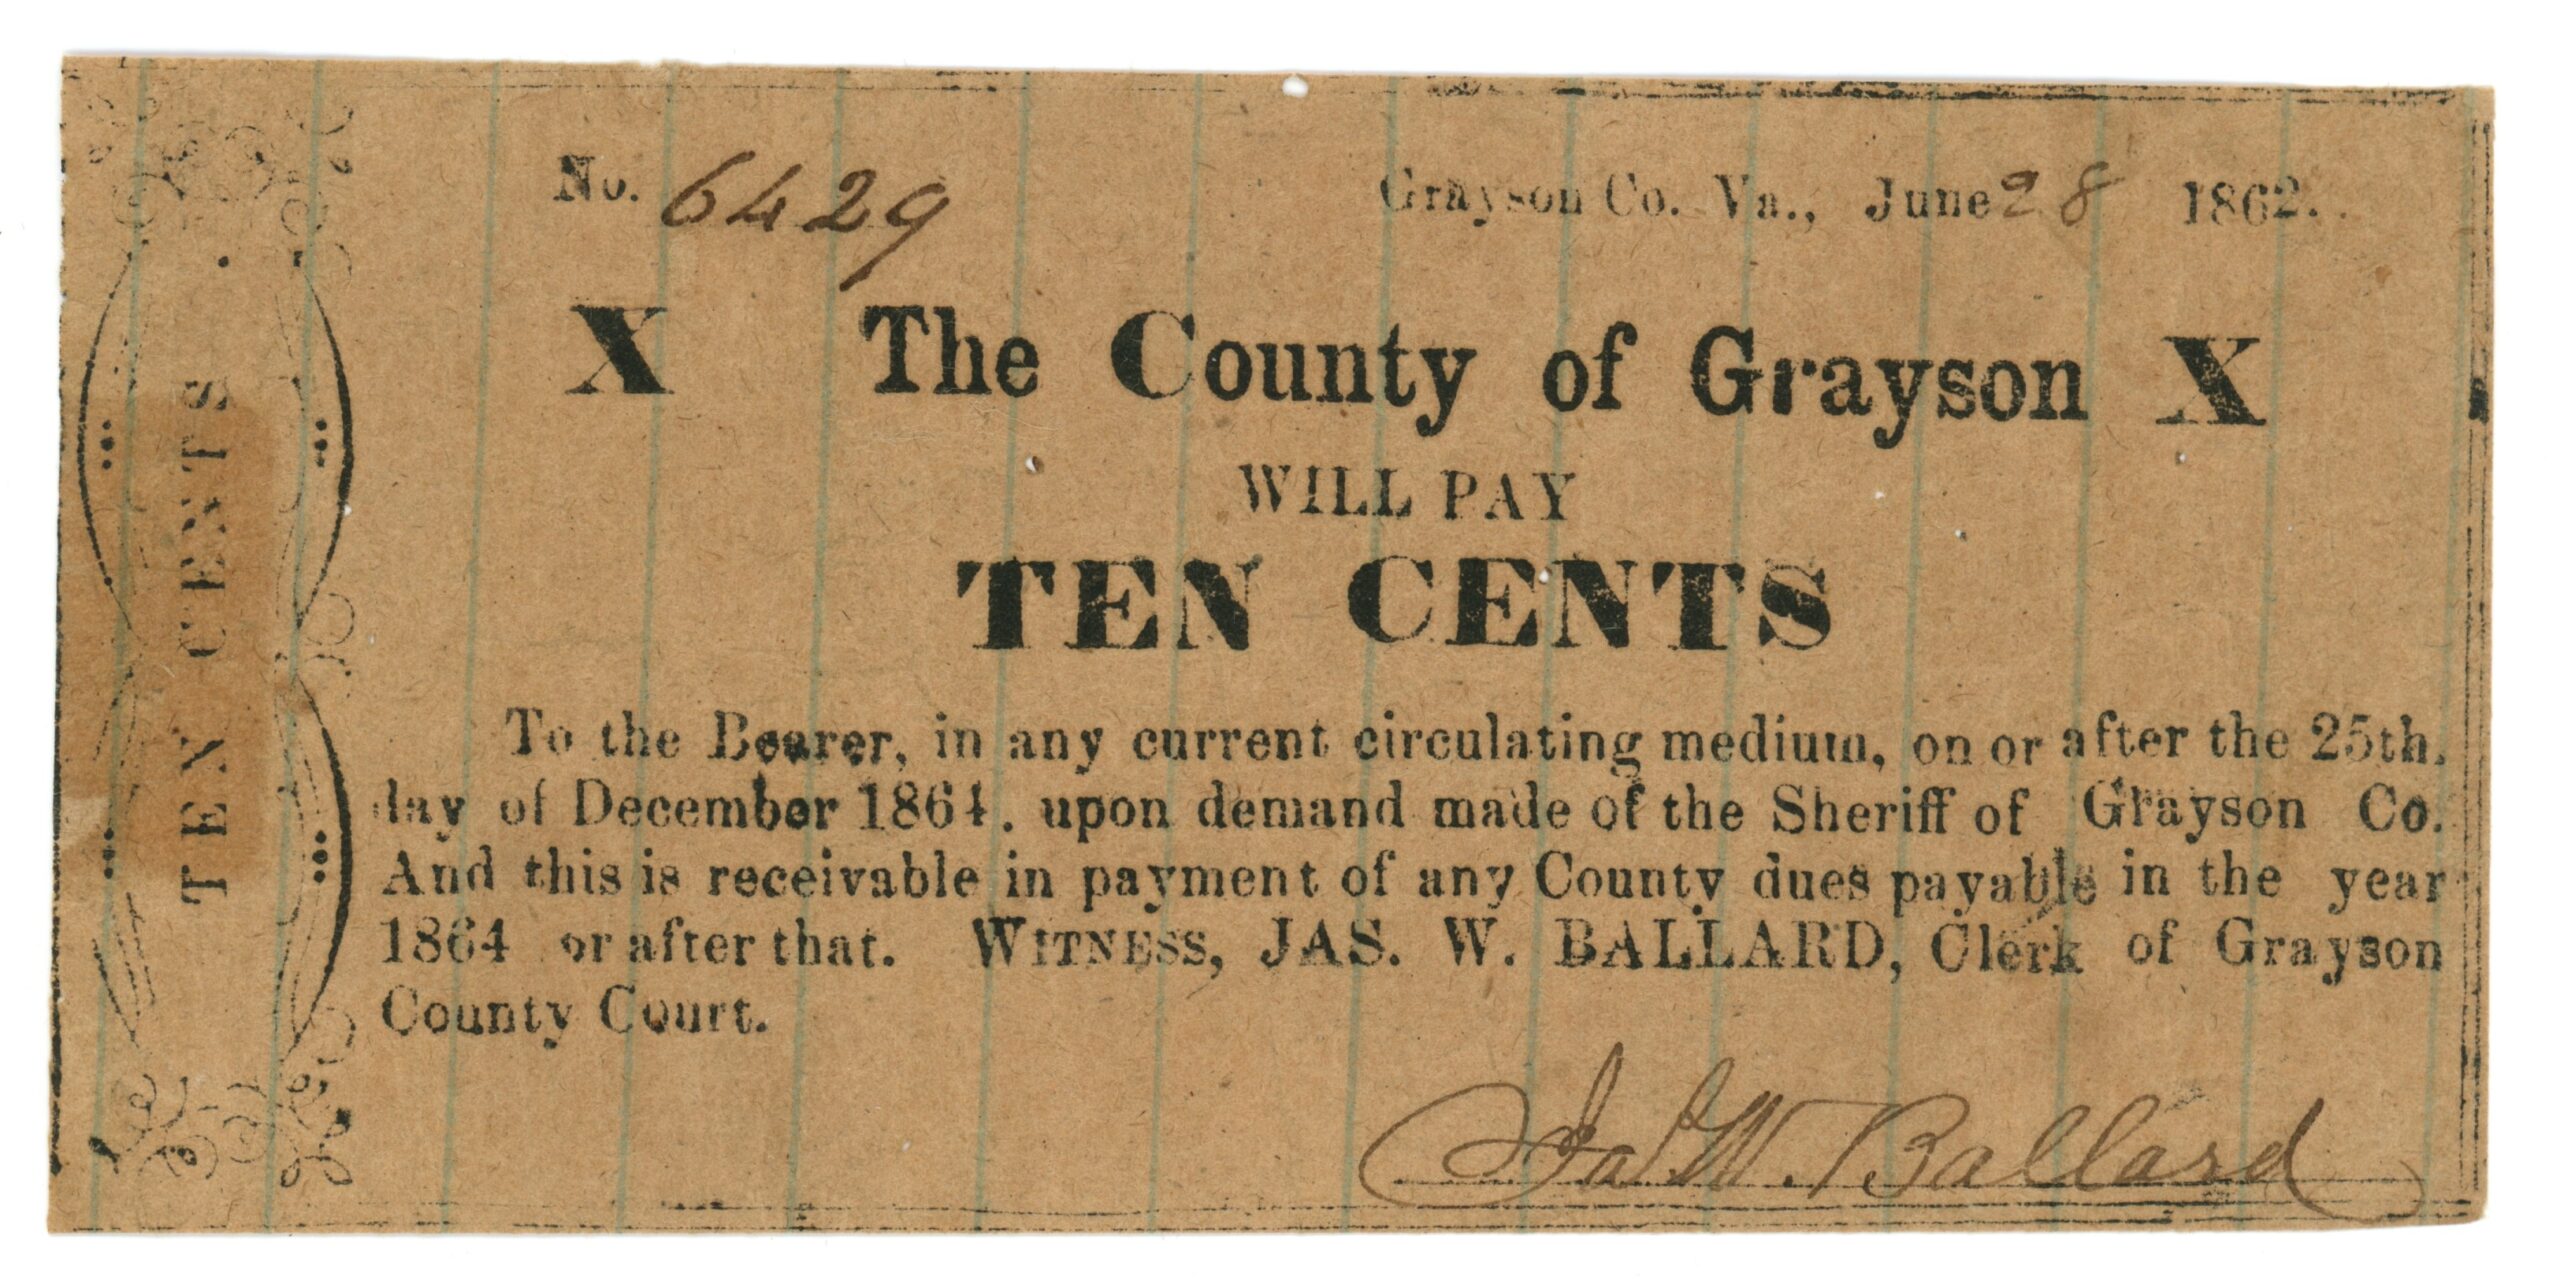 No. 6429 Grayson Co. Va., June 28 1862.
X The County of Grayson X
WILL PAY
TEN CENTS
To the Bearer, in any current circulating medium, on or after the 25th.
day of December 1864. upon demand made of the Sheriff of Grayson Co.
And this is receivable in payment of any County dues payable in the year
1864 or after that. WITNESS, JAS. W. BALLARD, Clerk of Grayson
County Court.
Jas W. Ballard
TEN CENTS.